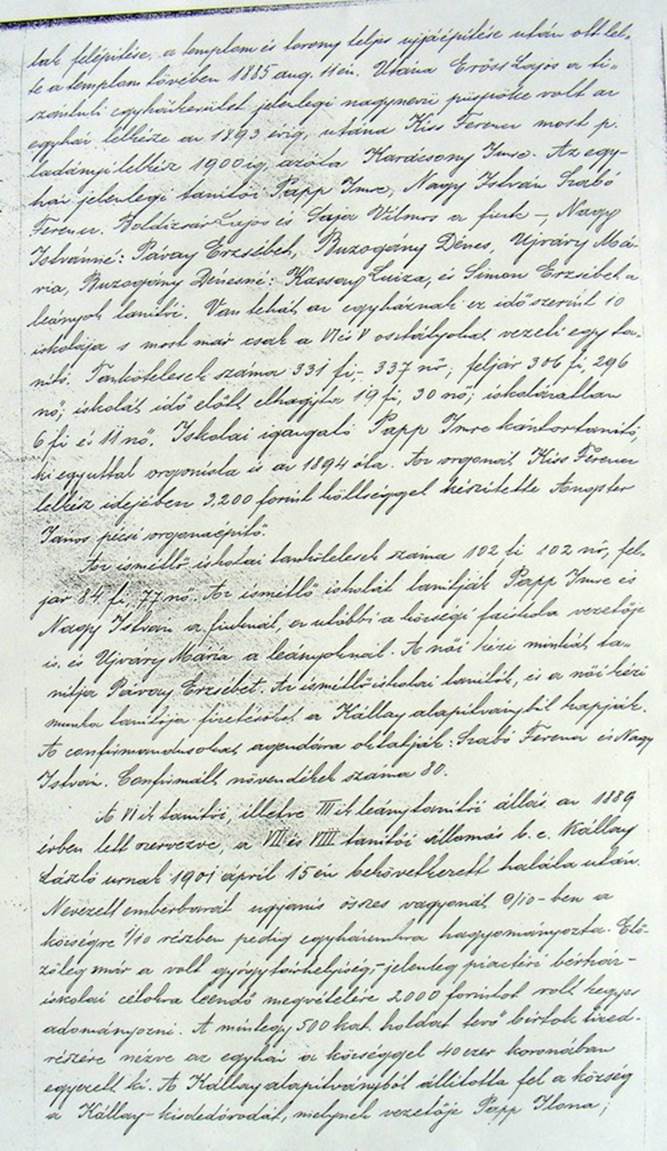 tak felépitése, a templom és torony teljes ujjáépitése után ott let-
te a templom tövében 1885 aug. 11én. Utána Erőss Lajos a ti-
szántuli egyházkerület jelenlegi nagynevü püspöke volt az
egyház lelkésze az 1893 évig, utána Kiss Ferenc most p.
ladányi lelkész 1900ig, azóta Karácsony Imre. Az egy-
ház jelenlegi tanitói Papp Imre, Nagy István Szabó
Ferenc. Boldizsár Lajos és Gaja Vilmos a fiuk – Nagy
Istvánné: Pávay Erzsébet, Buzogány Dénes, Ujváry Má-
ria, Buzogány Dénesné: Kassay Luiza, és Simon Erzsébet a
leányok tanitói. Van tehát az egyháznak ez idő szerint 10
iskolája s most már csak a VI és V osztályokat vezeti egy ta-
nító. Tankötelesek száma 331 fi, – 337 nő; feljár 306 fi, 296
nő; iskolát idő előtt elhagyta 19 fi, 30 nő; iskolázatlan
6 fi és 11 nő. Iskolai igazgató Papp Imre kántortanitó,
ki egyuttal orgonista is az 1894 óta. Az orgonát Kiss Ferenc
lelkész idejében 3,200 forint költséggel készitette Angster
János pécsi orgonaépitő.
Az ismétlő iskolai tankötelesek száma 102 fi 102 nő, fel-
jár 84 fi, 77 nő. Az ismétlő iskolát tanitják Papp Imre és
Nagy István a fiuknál, az utóbbi a községi faiskola vezetője
is, és Ujváry Mária a leányoknál. A női kézi munkát ta-
nitja Pávay Erzsébet. Az ismétlőiskolai tanitók, és a női kézi
munka tanitója fizetésöket a Kállay alapitványból kapják.
A confirmandusokat agendára oktatják: Szabó Ferenc és Nagy
István. Confirmált növendékek száma 80.
A VI ik tanitói, illetve III ik leánytanitói állás az 1889
évben lett szervezve, a VII és VIII tanitói állomás b. e. Kállay
László urnak 1901 april 15 én bekövetkezett halála után.
Nevezett emberbarát ugyanis összes vagyonát 9/10-ben a
községre 1/10 részben pedig egyházunkra hagyományozta. Elő-
zőleg már a volt gyógytárhelyiség, – jelenleg piactéri bérház –
iskolai célokra leendő megvételére 2000 forintot volt kegyes
adományozni. A mintegy 500 kat. holdat tevő birtok tized-
részére nézve az egyház a községgel 40 ezer koronában
egyezett ki. A Kállay alapitványból állitotta fel a község
a Kállay – kisdedóvodát, melynek vezetője Papp Ilona;